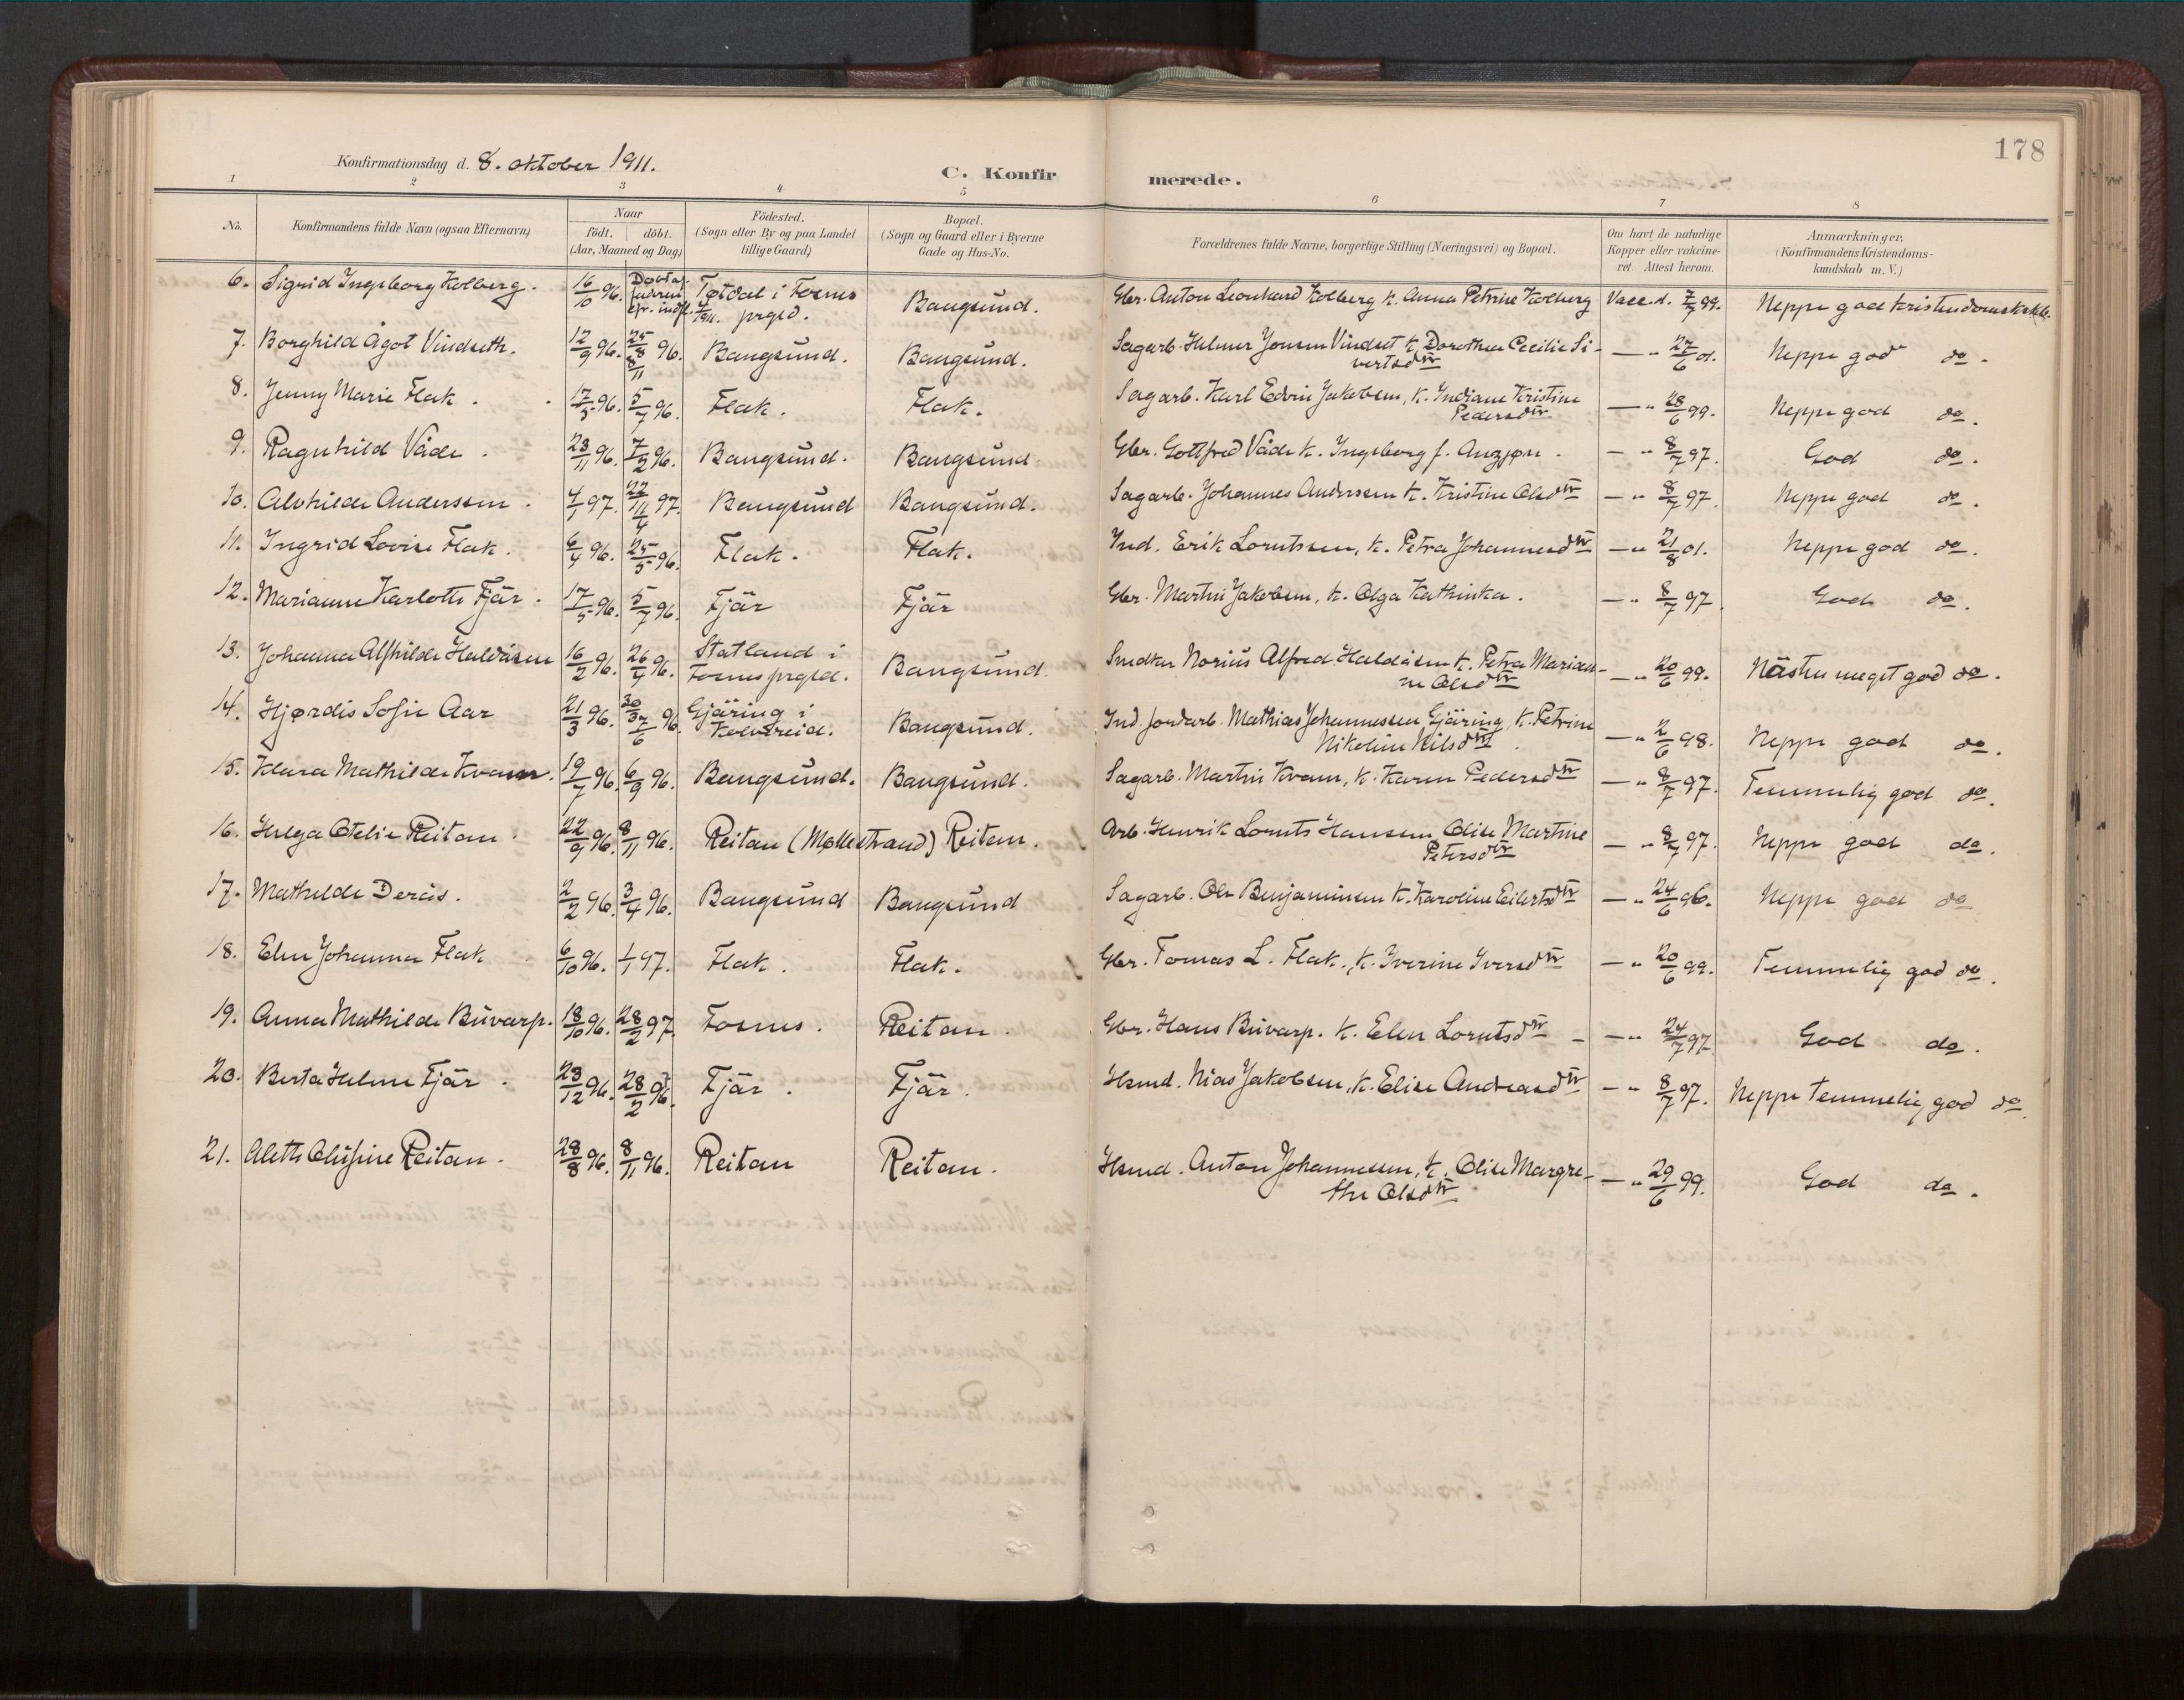 178
Konfirmationsdag d. 8. oktober 1911.
C. Konfirmerede.
1 2 3 4 5 6 7 8
No. Konfirmandens fulde Navn (ogsaa Efternavn) Naar födt. döbt. (Aar, Maaned og Dag) Födested. (Sogn eller By og paa Landet tillige Gaard) Bopæl. (Sogn og Gaard eller i Byerne Gade og Hus-No. Forældrenes fulde Navne, borgerlige Stilling (Næringsvei) og Bopæl. Om havt de naturlige Kopper eller vakcineret. Attest herom. Anmærkninger. (Konfirmandens Kristendomskundskab m. V.)
6. Sigrid Ingeborg Kolberg. 16/10 96. Døbt af Tøtdal i Fosnes prgld. Bangsund. Gbr. Anton Leonhard Kolberg K. Anna Petrine Kolberg Vacc. d. 7/7 99. Neppe god
7. Borghild Ågot Vindseth. 12/9 96. 25/8 96. Bangsund. Bangsund. Sagarb. Helmer Jonsen Vindset K. Dorothea Cecilie Sivertsdtr — " 27/6 01. Neppe god do.
8. Jenny Marie Flak. 17/5 96. 5/7 96. Flak. Flak. Sagarb. Karl Edvin Jakobsen, K. Indiane Kristine Pedersdtr — " 28/6 99. Neppe god do.
9. Ragnhild Våde. 23/11 96. 7/2 96. Bangsund. Bangsund. Gbr. Gottfred Våde K. Ingeborg f. — " 8/7 97. God do.
10. Alvhilde Anderssen. 4/1 97. 22/11 97. Bangsund Bangsund. Sagarb. Johannes Anderssen K. Kristine Olsdtr — " 8/7 97. Neppe god do.
11. Ingrid Lovise Flak. 6/4 96. 25/5 96. Flak. Flak. Ind. Erik Lorntssen, K. Petra Johannesdtr — " 21/8 01. Neppe god do.
12. Marianne Karlotte Fjär. 17/5 96. 5/7 96. Fjär Fjär Gbr. Martin Jakobsen, K. Olga Kathinka. — " 8/7 97. God do.
13. Johanna Alfhilde Haldåsen 16/2 96. 26/4 96. Statland i Fosnes prgld. Bangsund. Snedker Norius Alfred Haldåsen K. Petra Marianne Olsdtr — " 20/6 99. Nästen meget god do.
14. Hjørdis Sofie Aar 21/3 96. 7/6 96. Gjäring i Kolvereid. Bangsund. Ind. jordarb. Mathias Johannessen Gjäring, K. Petrine Nikoline Nilsdtr. — " 2/6 98. Neppe god do.
15. Klara Mathilde Kvam. 19/7 96. 6/9 96. Bangsund. Bangsund. Sagarb. Martin Kvam, K. Karen Pedersdtr — " 8/7 97. Temmelig god do.
16. Helga Otelie Reitan. 22/9 96. 8/11 96. Reitan (Møllestrand) Reitan. Arb. Henrik Lornts Hansen, Olise Martine Petersdtr — " 8/7 97. Neppe god do.
17. Mathilde Derås. 2/2 96. 3/4 96. Bangsund Bangsund Sagarb. Ole Benjaminsen K. Karoline Eilertsdtr — " 24/6 96. Neppe god do
18. Elen Johanna Flak 6/10 96. 1/1 97. Flak. Flak. Gbr. Tomas L. Flak, K. Iverine Iversdtr — " 20/6 99. Temmelig god do.
19. Anna Mathilde Buvarp. 18/10 96. 28/2 97. Fosnes. Reitan. Gbr. Hans Buvarp. K. Elen Lorntsdtr — " 24/7 97. God do.
20. Berta Helene Fjär. 23/12 96. 28/2 97. Fjär. Fjär. Hsmd. Nias Jakobsen, K. Elise Andreasdtr — " 8/7 97. Neppe temmelig god do.
21. Aleth Olufine Reitan. 28/8 96. 8/11 96. Reitan Reitan. Hsmd. Anton Johannessen, K. Olise Margrethe Olsdtr — " 29/6 99. God do.